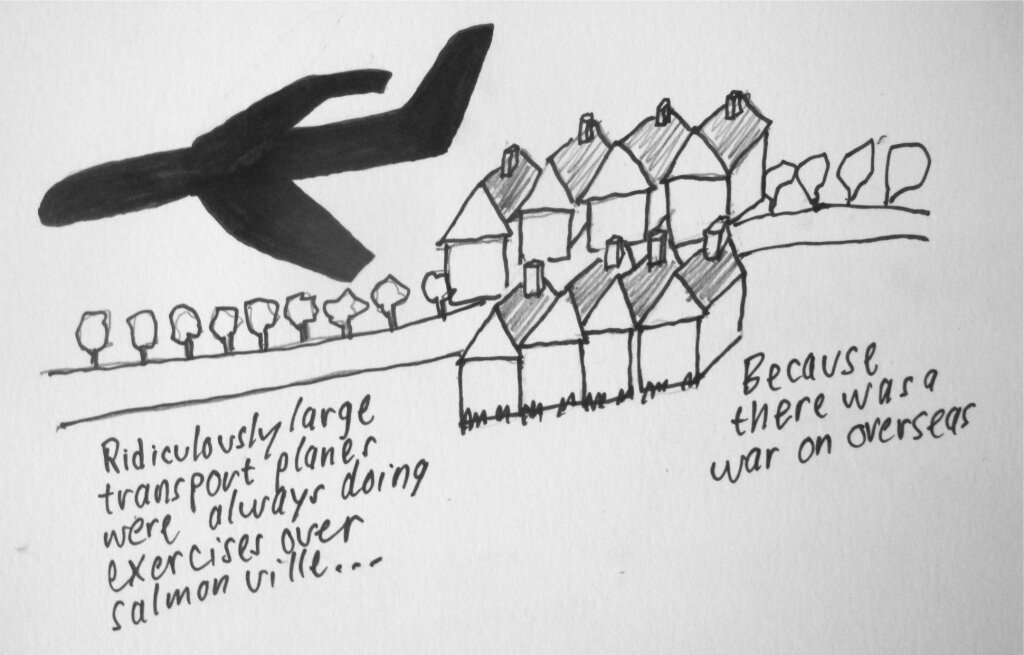 Ridiculously large
transport planes
were always doing
exercises over
salmon ville...
Because
there was a
war on overseas